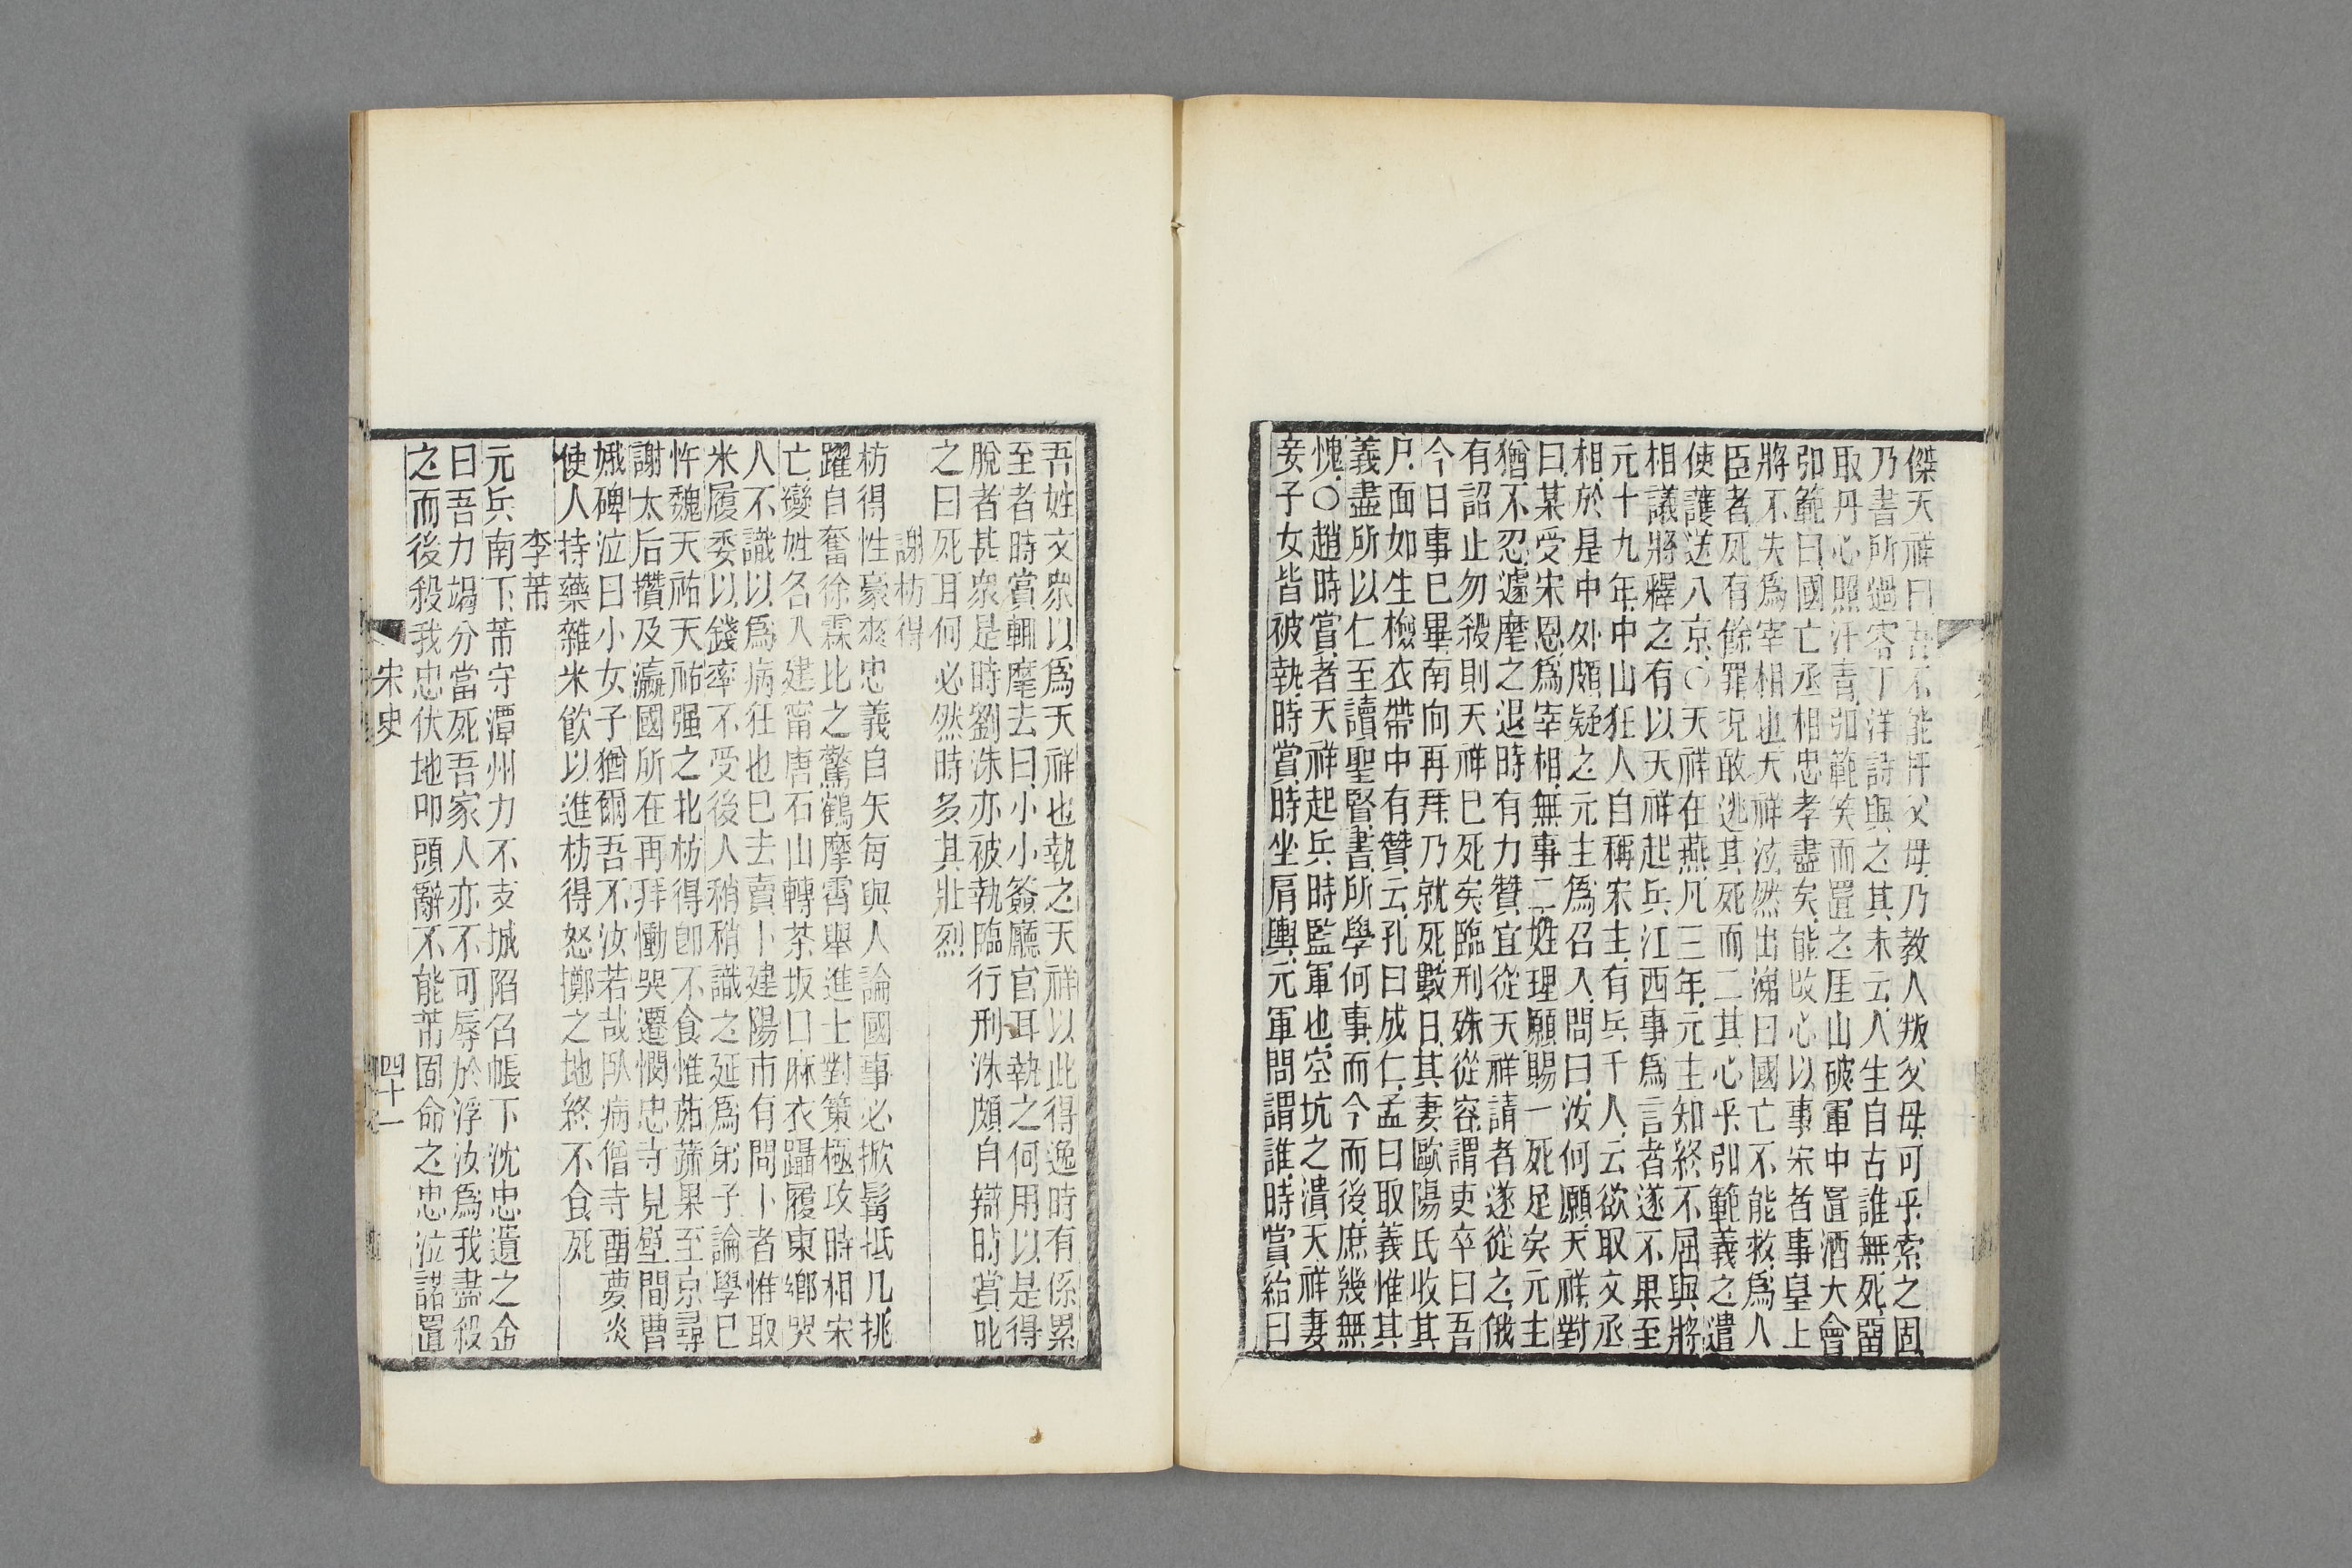 傑天祥曰吾不能扞父母乃教人叛父母可乎索之固
乃書所過零丁洋詩與之其末云人生自古誰無死留
取丹心照汗青弘範笑而置之厓山破軍中置酒大會
弘範曰國亡丞相忠孝盡矣能改心以事宋者事皇上
將不失為宰相也天祥泫然出涕曰國亡不能救為人
臣者死有餘罪況敢逃其死而二其心乎弘範義之遣
使護送八京○天祥在燕凡三年元主知終不屈與將
相議將釋之有以天祥起兵江西事為言者遂不果至
元十九年中山狂人自稱宋主有兵千人云欲取文丞
相於是中外頗疑之元主為召入問曰汝何願天祥對
曰某受宋恩為宰相無事二姓理願賜一死足矣元主
猶不忍遽麾之退時有力贊宜從天祥請者遂從之俄
有詔止勿殺則天祥已死矣臨刑殊從容謂吏卒曰吾
今日事已畢南向再拜乃就死數日其妻歐陽氏收其
尸面如生檢衣帶中有贊云孔曰成仁孟曰取義惟其
義盡所以仁至讀聖賢書所學何事而今而後庶幾無
愧○趙時賞者天祥起兵時監軍也空坑之潰天祥妻
妾子女皆被執時賞時坐肩輿元軍問謂誰時賞紿曰
吾姓文眾以為天祥也執之天祥以此得逸時有係累
至者時賞輒麾去曰小小簽廳官耳執之何用以是得
脫者甚眾是時劉洙亦被執臨行刑洙頗自辯時賞叱
之曰死耳何必然時多其壯烈
謝枋得
枋得性豪爽忠義自矢每與人論國事必掀髯抵几挑
躍自奮徐霖比之驚鶴摩霄舉進士對策極攻時相宋
亡變姓名入建甯唐石山轉茶坂口麻衣躡履東鄉哭
人不識以為病狂也已去賣卜建陽市有問卜者惟取
米履委以錢率不受後人稍稍識之延為弟子論學已
忤魏天祐天祐强之北枋得卽不食惟茹蔬果至京尋
謝太后攢及瀛國所在再拜慟哭遷憫忠寺見壁間曹
娥碑泣曰小女子猶爾吾不汝若哉臥病僧寺留夢炎
使人持藥雜米飲以進枋得怒擲之地終不食死
李芾
元兵南下芾守潭州力不支城陷召帳下沈忠遺之金
曰吾力竭分當死吾家人亦不可辱於浮汝為我盡殺
之而後殺我忠伏地叩頭辭不能芾固命之忠泣諾置
宋史
四十一